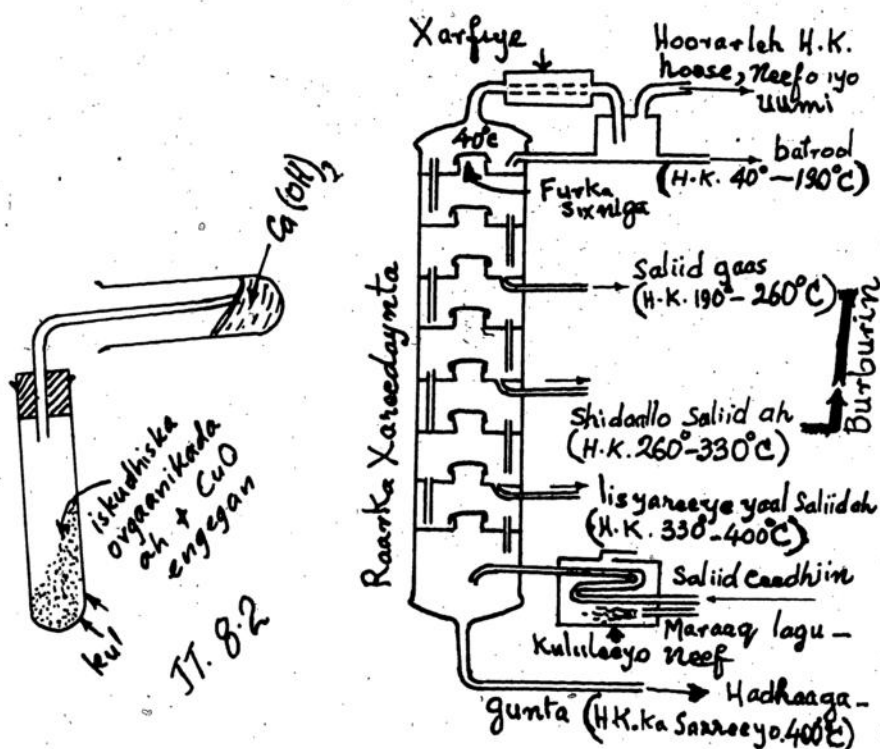 Ca(OH)₂
iskudhiska
orgaanikada
ah + CuO
engegan
kul
JT. 8.2
Xarfiye
Hoorarleh H.K.
hoose, Neefo iyo
uumi
40°c
batrool
(H.K. 40°–190°C)
Furka
sixniga
Saliid gaas
(H.K. 190°–260°C)
Burburin
Shidaallo Saliid ah
(H.K. 260°–330°C)
lisyareeye yaal Saliid ah
(H.K. 330°–400°C)
Raarka Xareedaynta
Saliid ceedhjin
Maraaq lagu–
Kululeeyo neef
Hadhaaga–
gunta (H.K.ka Sarreeyo.400°C)